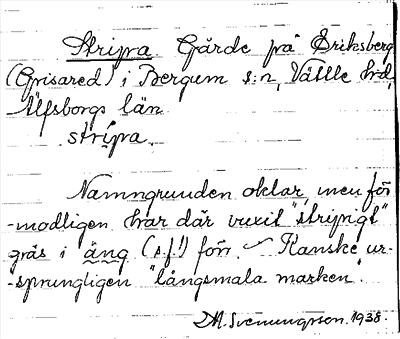 Stripra. Gärde på Eriksberg
(Grisared) i Bergum s:n, Vättle hrd,
Älfsborgs län.
strípra.
Namngrunden oklar, men för-
-modligen har där vuxit "stripigt"
gräs i äng (s.f.!) förr. Kanske ur-
-sprungligen "långsmala marken".
M. Svenungsson. 1938.